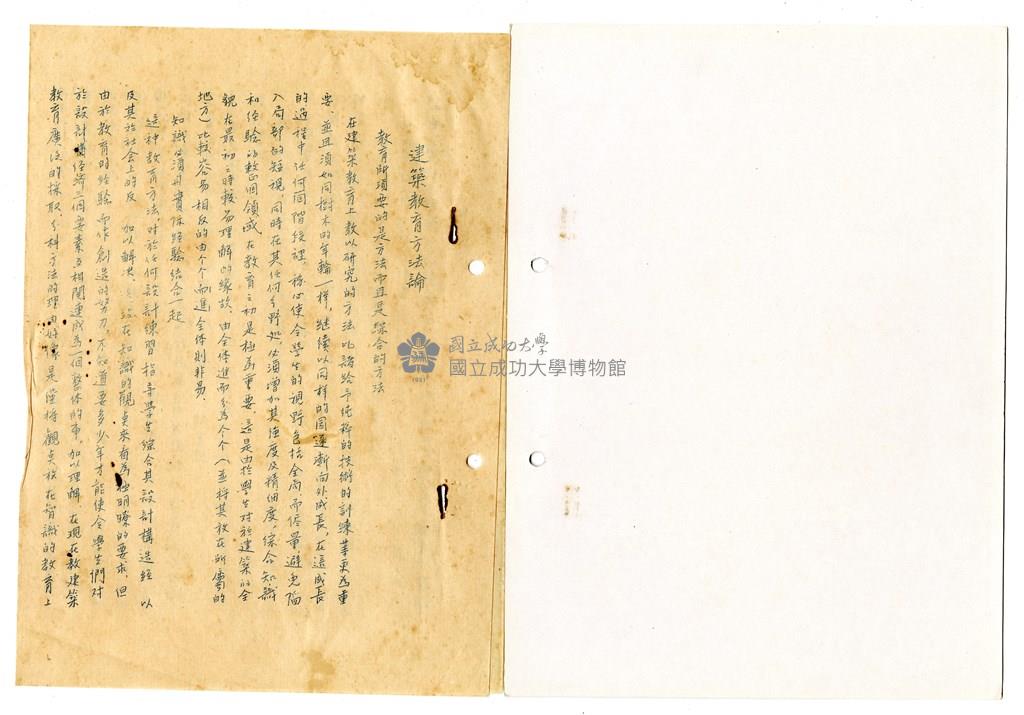 建築教育方法論
教育所須要的是方法而且是綜合的方法
在建築教育上教以研究的方法比諸給予純粹的技術的訓練華更為重
要、並且須如同樹木的年輪一樣，継续以同样的圈逐漸向外成長，在這成長
的過程中任何同階段裡，務必使令學生的視野包括全局而儘量避免陥
入局部的短視，同時在其任何分野処，必須增加其強度及精细度，综合知識
和经驗的整個領域在教育之初是極為重要，這是由於學生对於建築的全
貌在最初之時較易理解的緣故、由全体進而分為个个（並将其放在所需的
地方）比較容易相反的由个个而進全体則非易、
知識必須與實際经驗结合一起
這种教育方法，对於任何設計練習，指導學生综合其設計構造经 以
及其於社会上的反 加以解决、 在知識的觀奌来看為極明瞭的要求，但
由於教育的经驗而作創造的努力，不知道要多少年才能使令學生們对
於設計 经济三個要素互相関連成為一個整体的事，加以理解，在現在教建築
教育廣泛的採取、分科方法的理由好像是僅将觀奌放在智識的教育上
國立成功大學
國立成功大學博物館
1931